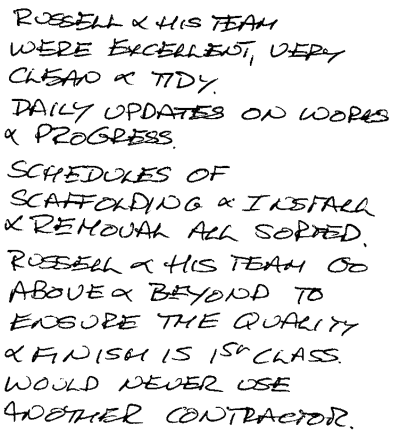 RUSSELL & HIS TEAM
WERE EXCELLENT, VERY
CLEAN & TIDY.
DAILY UPDATES ON WORKS
& PROGRESS.
SCHEDULES OF
SCAFFOLDING & INSTALL
& REMOVAL ALL SORTED.
RUSSELL & HIS TEAM GO
ABOVE & BEYOND TO
ENSURE THE QUALITY
& FINISH IS 1ST CLASS.
WOULD NEVER USE
ANOTHER CONTRACTOR.